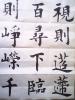 視則迢遞
百尋下臨
則崢嶸千